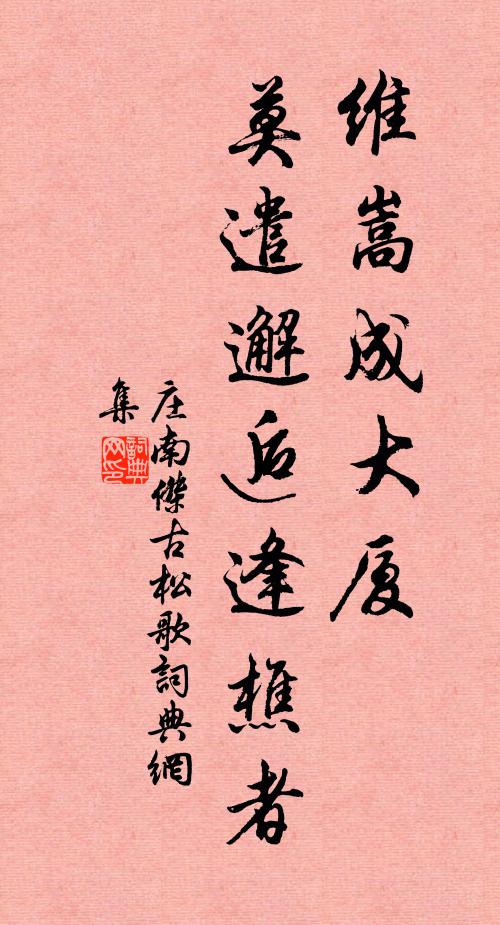 維嵩成大厦
莫遣邂逅逢樵者
庄南傑古松歌詞典網
集
詞典
网印